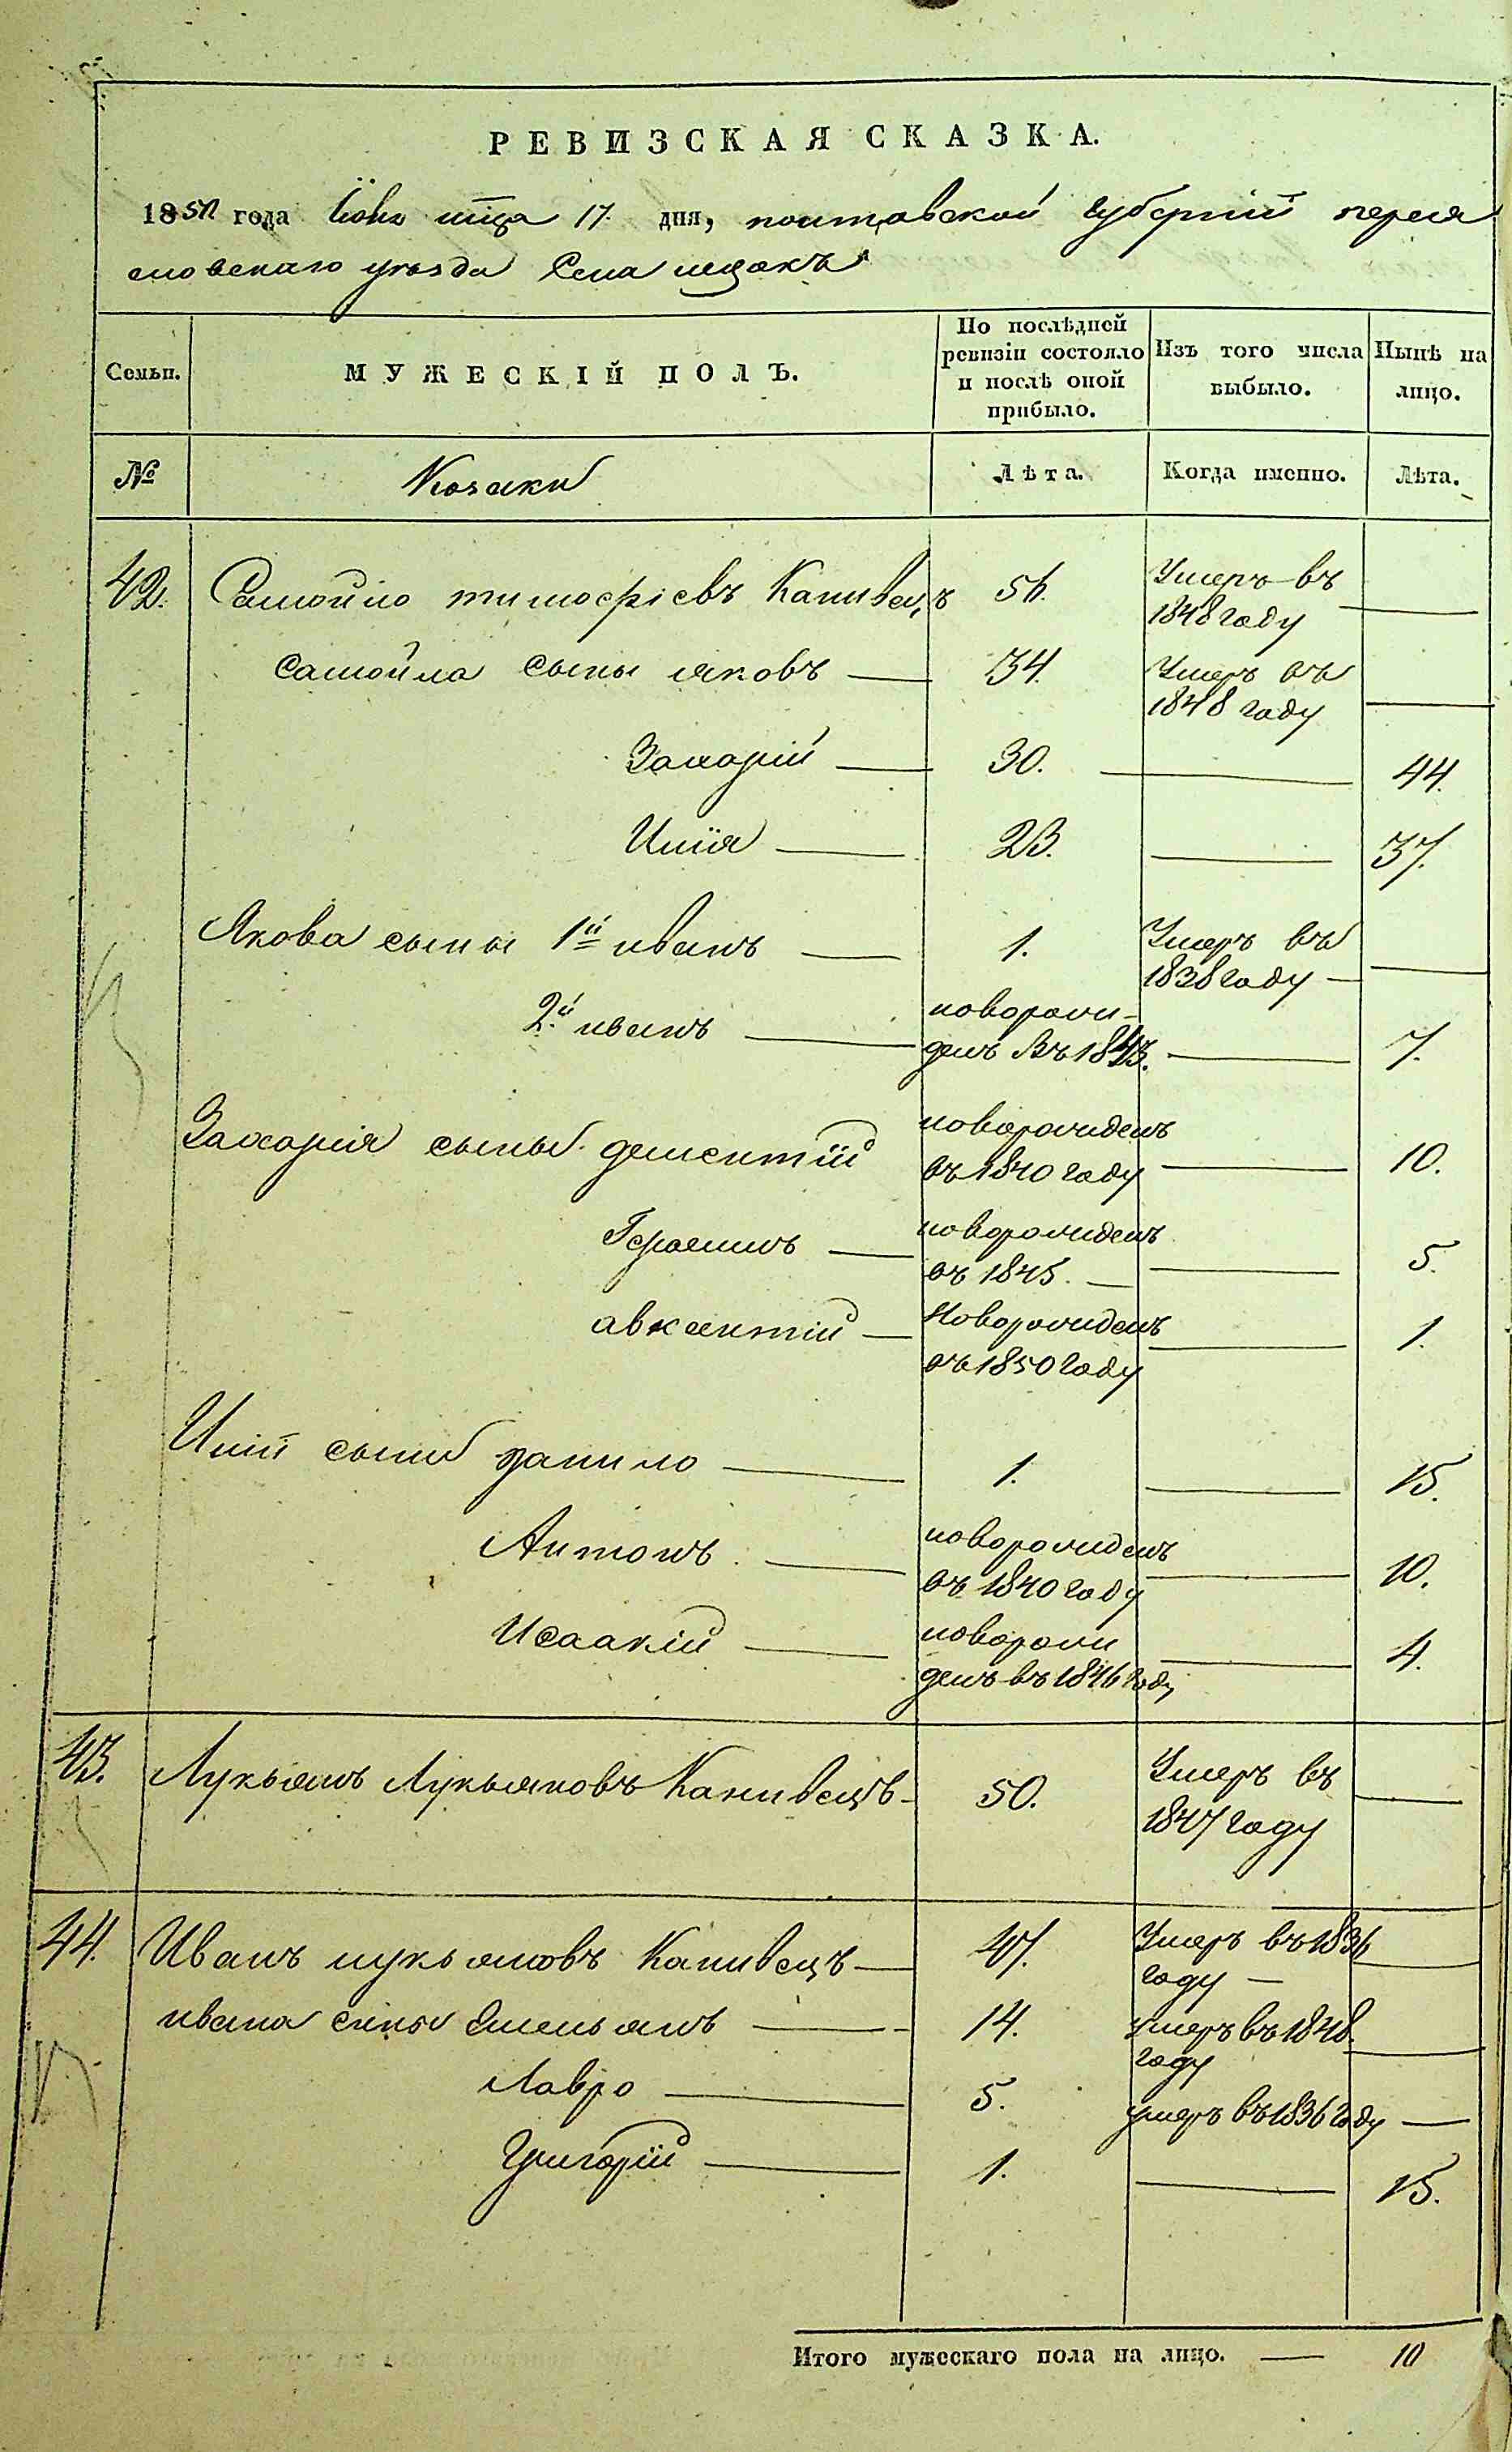 РЕВИЗСКАЯ СКАЗКА.
1850 года Iюня мѣсяца 17. дня, полтавской губернiи перея
словскаго уѣзда Села
Семьи. МУЖЕСКІЙ ПОЛЪ. По послѣдней ревизіи состояло и послѣ оной прибыло. Изъ того числа выбыло. Нынѣ на лицо.
№ Козаки Лѣта. Когда именно. Лѣта.
42. Самойло тимофіевъ Канивецъ 56. Умеръ въ 1848 году —
Самойла сыны яковъ — 34. Умеръ въ 1848 году —
Захарій — 30. — 44.
Илїя — 23. — 37.
Якова сыны 1й иванъ — 1. Умеръ въ 1838 году —
2й иванъ — новорожденъ въ 1843. — 7.
Захарія сыны дементій новорожденъ въ 1840 году — 10.
Герасимъ — новорожденъ въ 1845. — 5.
авксентій — Новорожденъ въ 1850 году — 1.
Иліи сыны данило — 1. — 15.
Антонъ — новорожденъ въ 1840 году — 10.
Исаакій — новорожденъ въ 1846 году — 4.
43. Лукьянъ Лукьяновъ Канивецъ — 50. Умеръ въ 1847 году —
44. Иванъ лукьяновъ Канивецъ — 47. Умеръ въ 1836 году —
ивана сины Емельянъ — 14. умеръ въ 1848. году —
Лавро — 5. умеръ въ 1836 году —
Григорій — 1. — 15.
Итого мужескаго пола на лицо. — 10